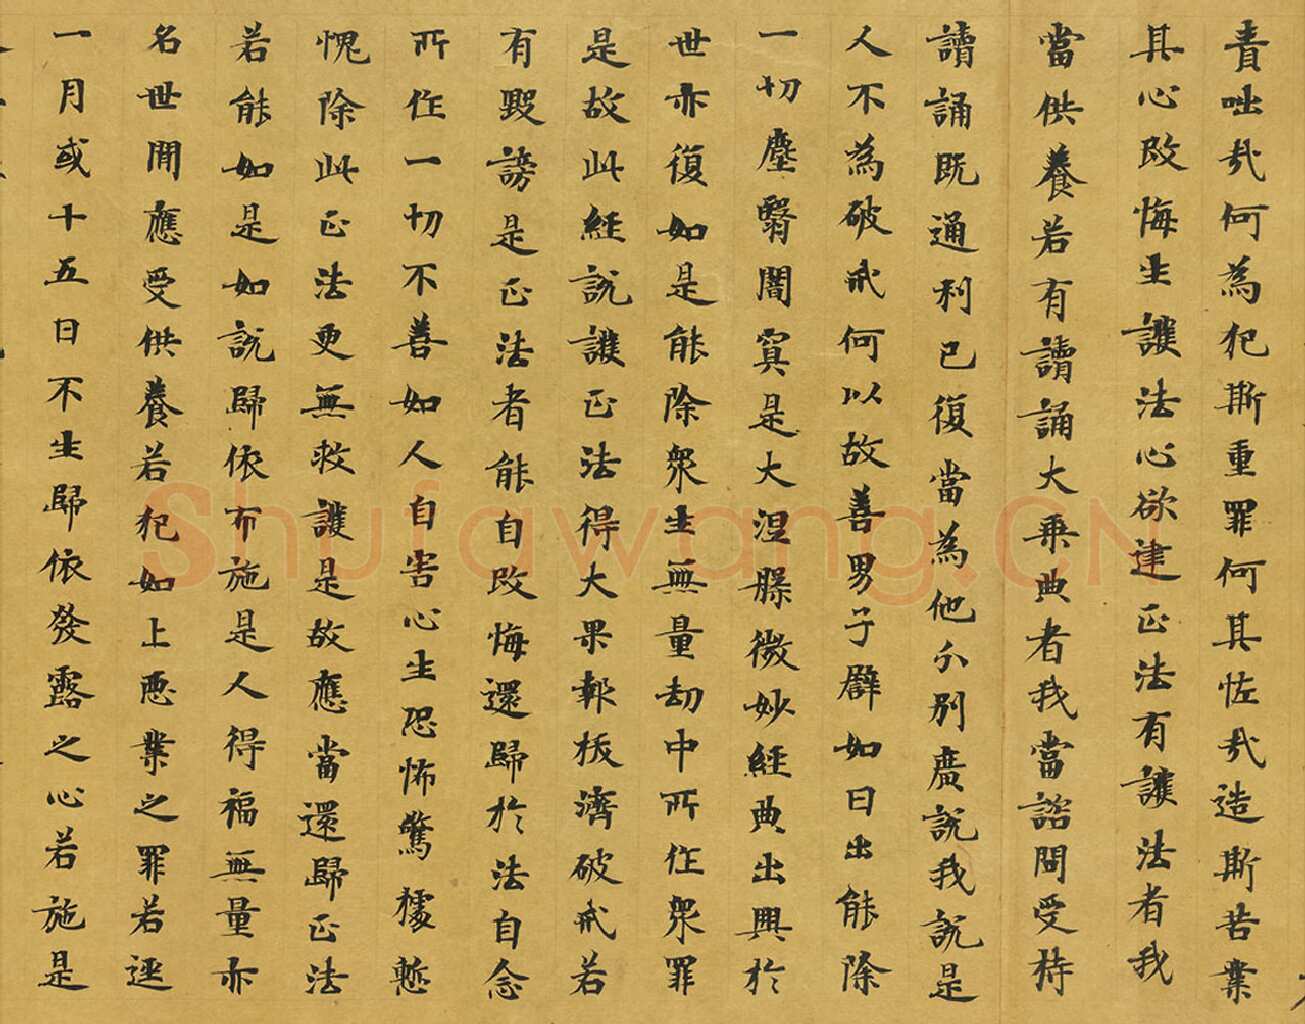 責咄哉何為犯斯重罪何其恠哉造斯苦業
其心改悔生護法心欲建正法有護法者我
當供養若有讀誦大乘典者我當諮問受持
讀誦既通利已復當為他分別廣說我說是
人不為破戒何以故善男子辟如日出能除
一切塵翳闇冥是大涅槃微妙經典出興於
世亦復如是能除衆生無量劫中所作衆罪
是故此經說護正法得大果報拔濟破戒若
有毀謗是正法者能自改悔還歸於法自念
所作一切不善如人自害心生恐怖驚懅慙
愧除此正法更無救護是故應當還歸正法
若能如是如說歸依布施是人得福無量亦
名世間應受供養若犯如上惡業之罪若逕
一月或十五日不生歸依發露之心若施是
Shufawang.CN